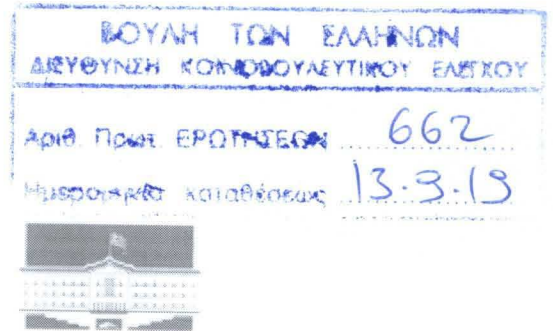 ΒΟΥΛΗ ΤΩΝ ΕΛΛΗΝΩΝ
ΔΙΕΥΘΥΝΣΗ ΚΟΙΝΟΒΟΥΛΕΥΤΙΚΟΥ ΕΛΕΓΧΟΥ
Αριθ. Πρωτ. ΕΡΩΤΗΣΕΩΝ 662
Ημερομηνία καταθέσεως 13.9.19